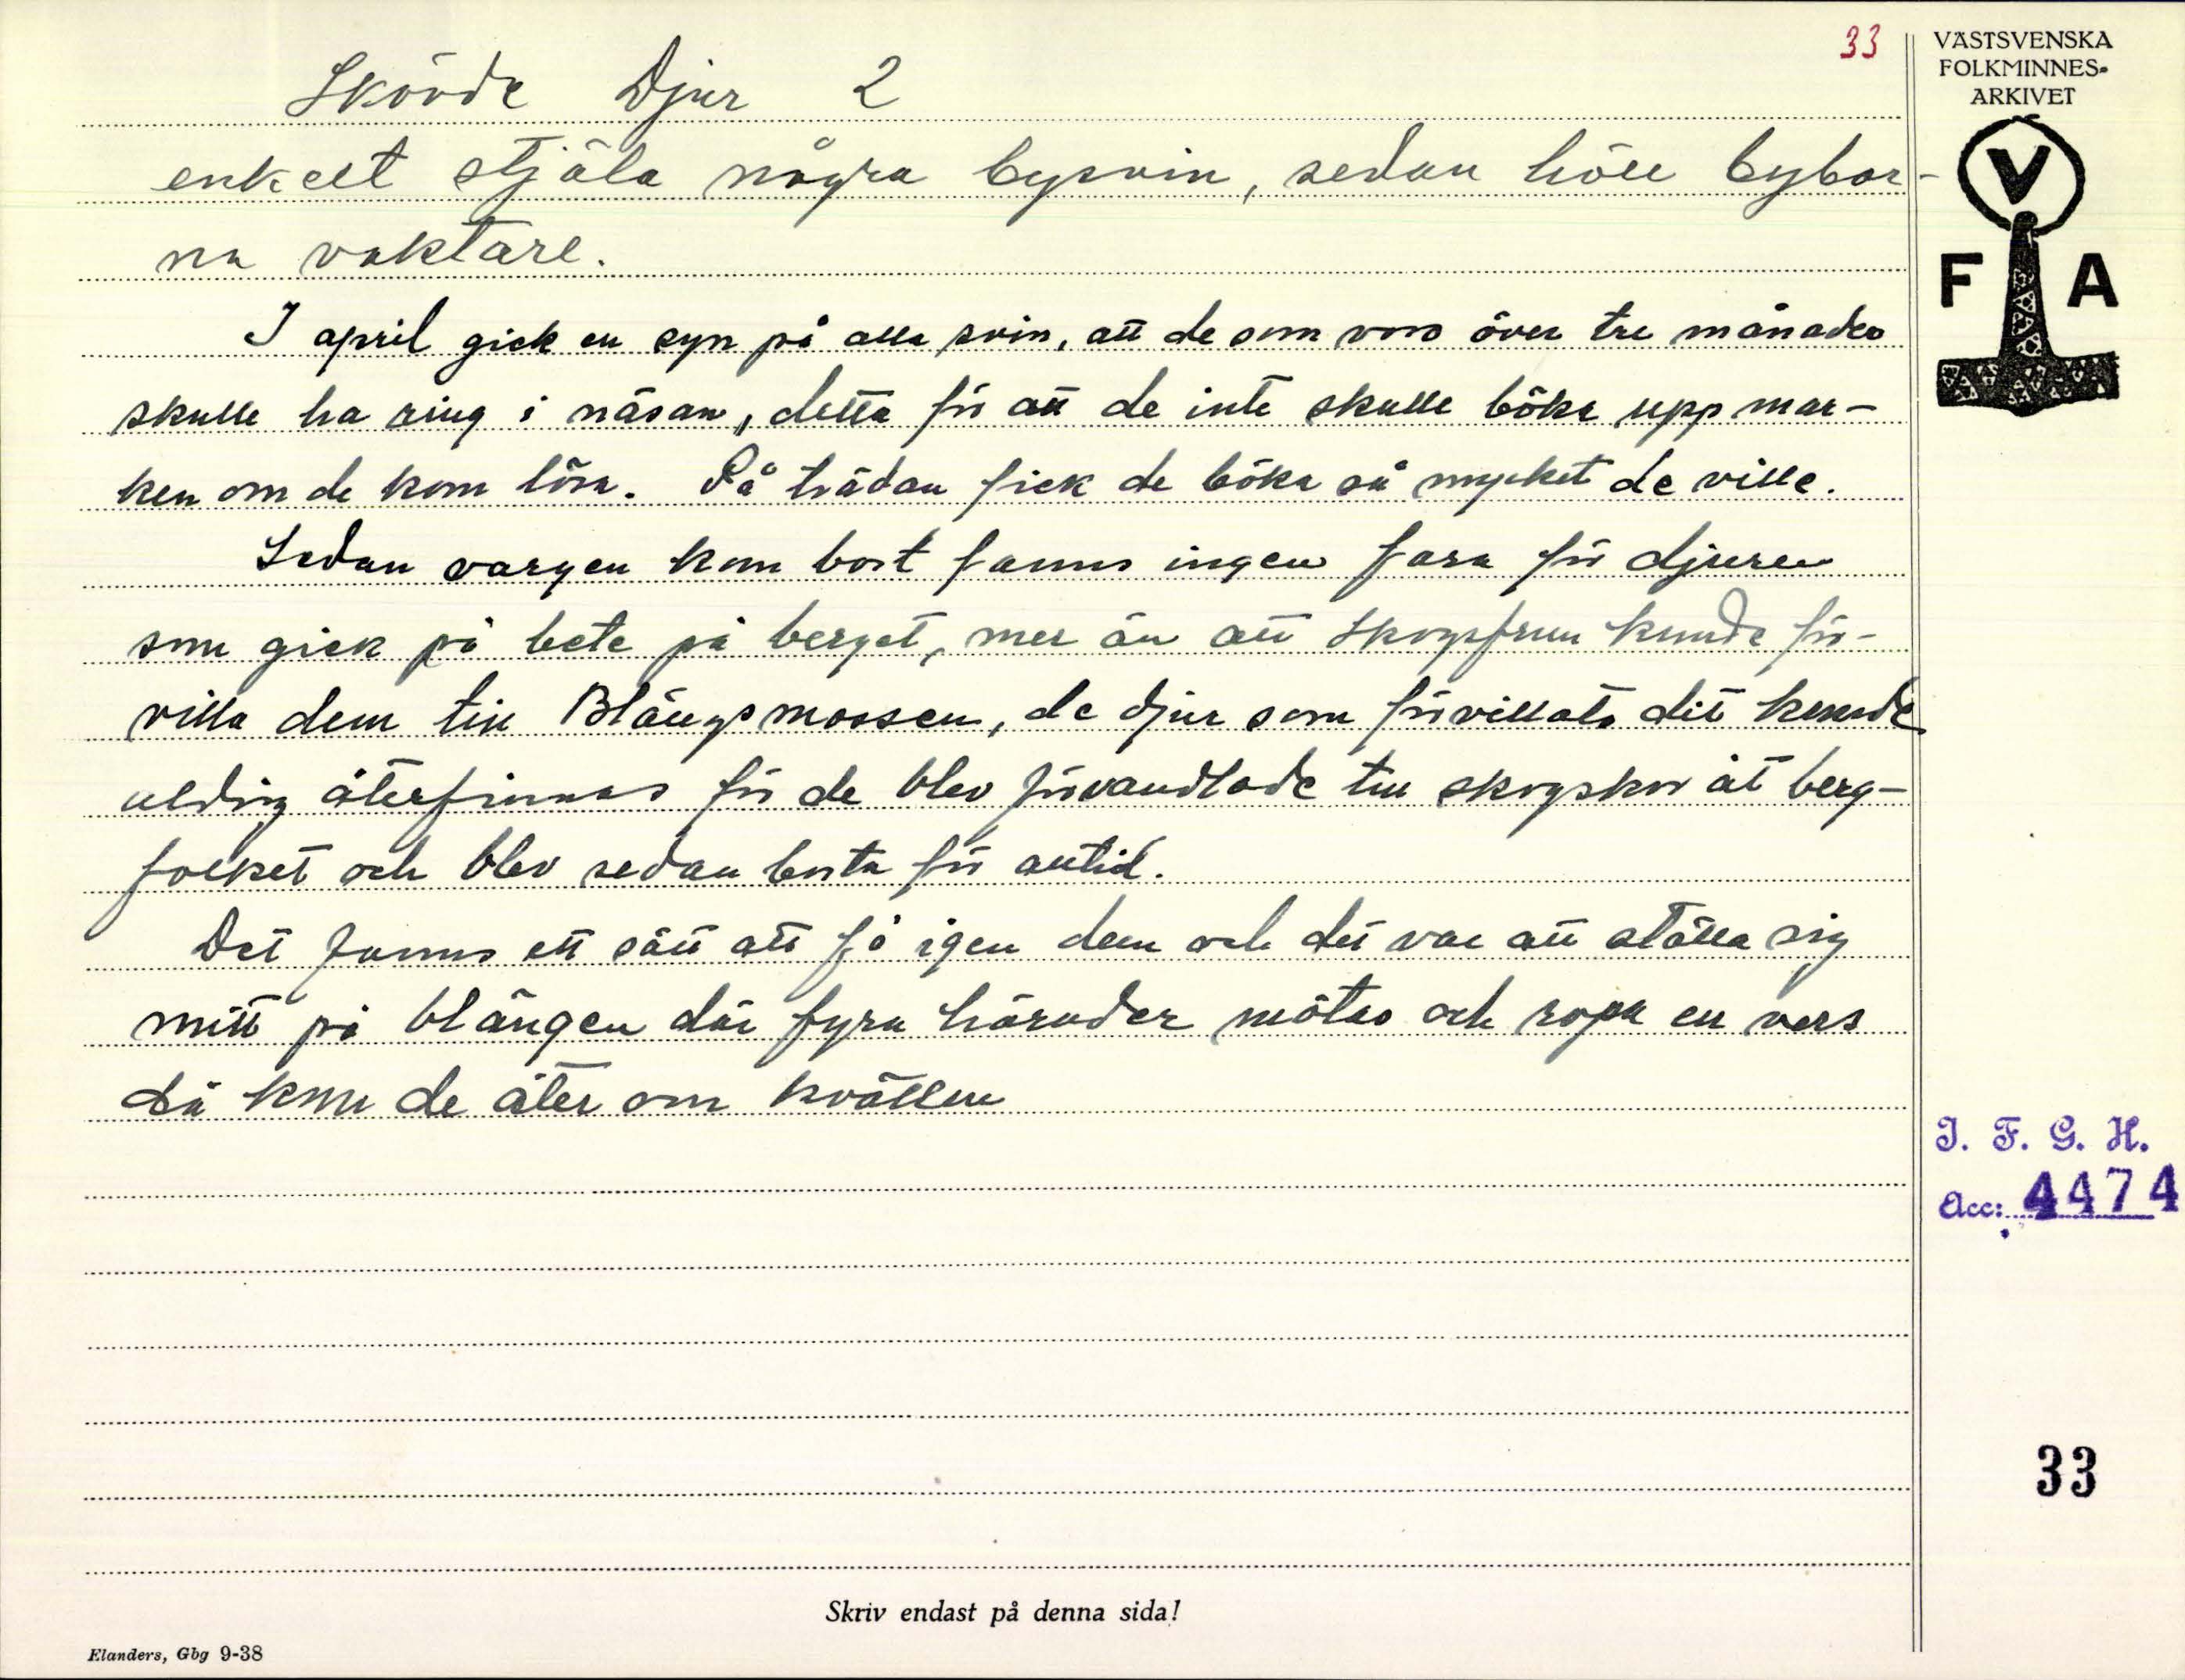 33
Skövde Djur 2
enkelt stjäla några bysvin, sedan höll bybor-
na vaktare.
I april gick en syn på alla svin, att de som voro över tre månader
skulle ha ring i näsan, detta för att de inte skulle böka upp mar-
ken om de kom lösa. På trädan fick de böka så mycket de ville.
Sedan vargen kom bort fanns ingen fara för djuren
som gick på bete på berget, mer än att Skogsfrun kunde för-
villa dem till Blängsmossen, de djur som förvillats dit kunde
aldrig återfinnas för de blev förvandlade till skogskor åt berg-
folket och blev sedan borta för alltid.
Det fanns ett sätt att få igen dem och det var att ställa sig
mitt på blängen där fyra härader mötas och ropa en vers
då kom de åter om kvällen
VÄSTSVENSKA
FOLKMINNES-
ARKIVET
V
F A
I. F. G. H.
Acc: 4474
33
Skriv endast på denna sida!
Elanders, Gbg 9-38